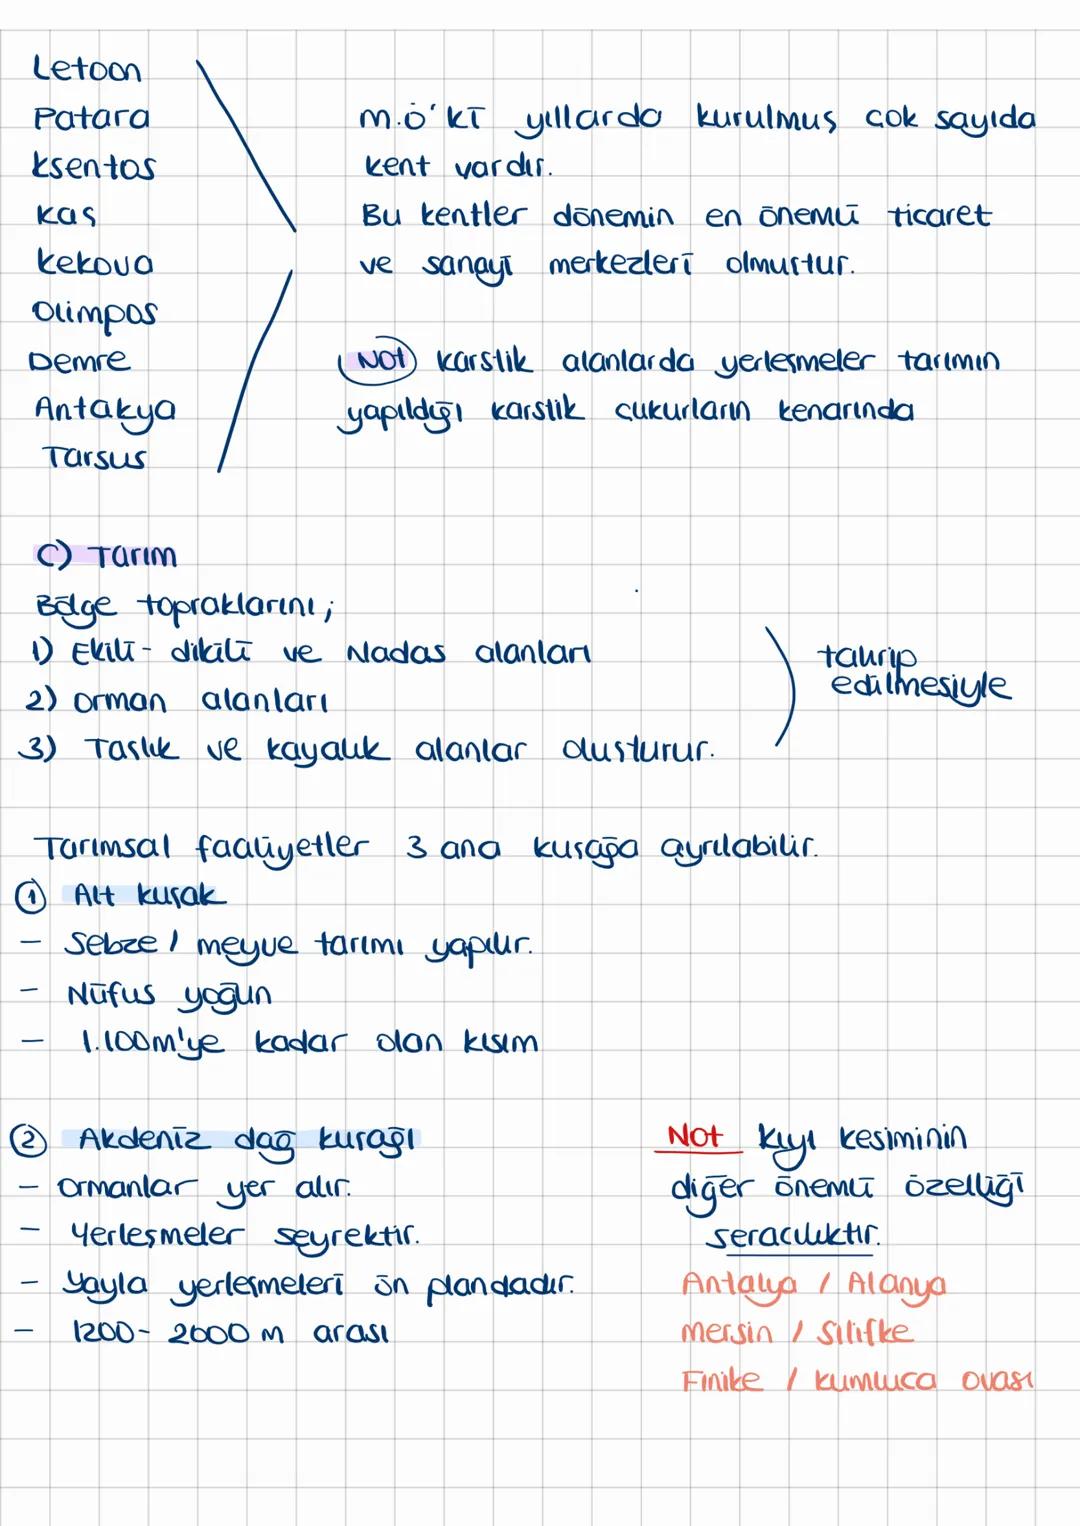 Letoon
Patara
Ksentos
Kaş
Kekova
Olimpos
Demre
Antakya
Tarsus
m.ö'ki yıllarda kurulmuş çok sayıda
kent vardır.
Bu kentler dönemin en önemli ticaret
ve sanayi merkezleri olmuştur.
Not karstik alanlarda yerleşmeler tarımın
yapıldığı karstik çukurların kenarında
C) Tarım
Bölge topraklarını;
1) Ekili- dikili ve Nadas alanları
2) orman alanları
3) Taşlık ve kayalık alanlar oluşturur.
tahrip
edilmesiyle
Tarımsal faaliyetler 3 ana kuşağa ayrılabilir.
① Alt kuşak
- Sebze / meyve tarımı yapılır.
- Nüfus yoğun
- 1.100m'ye kadar olan kısım
② Akdeniz dağ kuşağı
- Ormanlar yer alır.
- Yerleşmeler seyrektir.
- Yayla yerleşmeleri ön plandadır.
- 1200- 2000 m arası
Not kıyı kesiminin
diğer önemli özelliği
seracılıktır.
Antalya / Alanya
mersin / Silifke
Finike / kumluca ovası